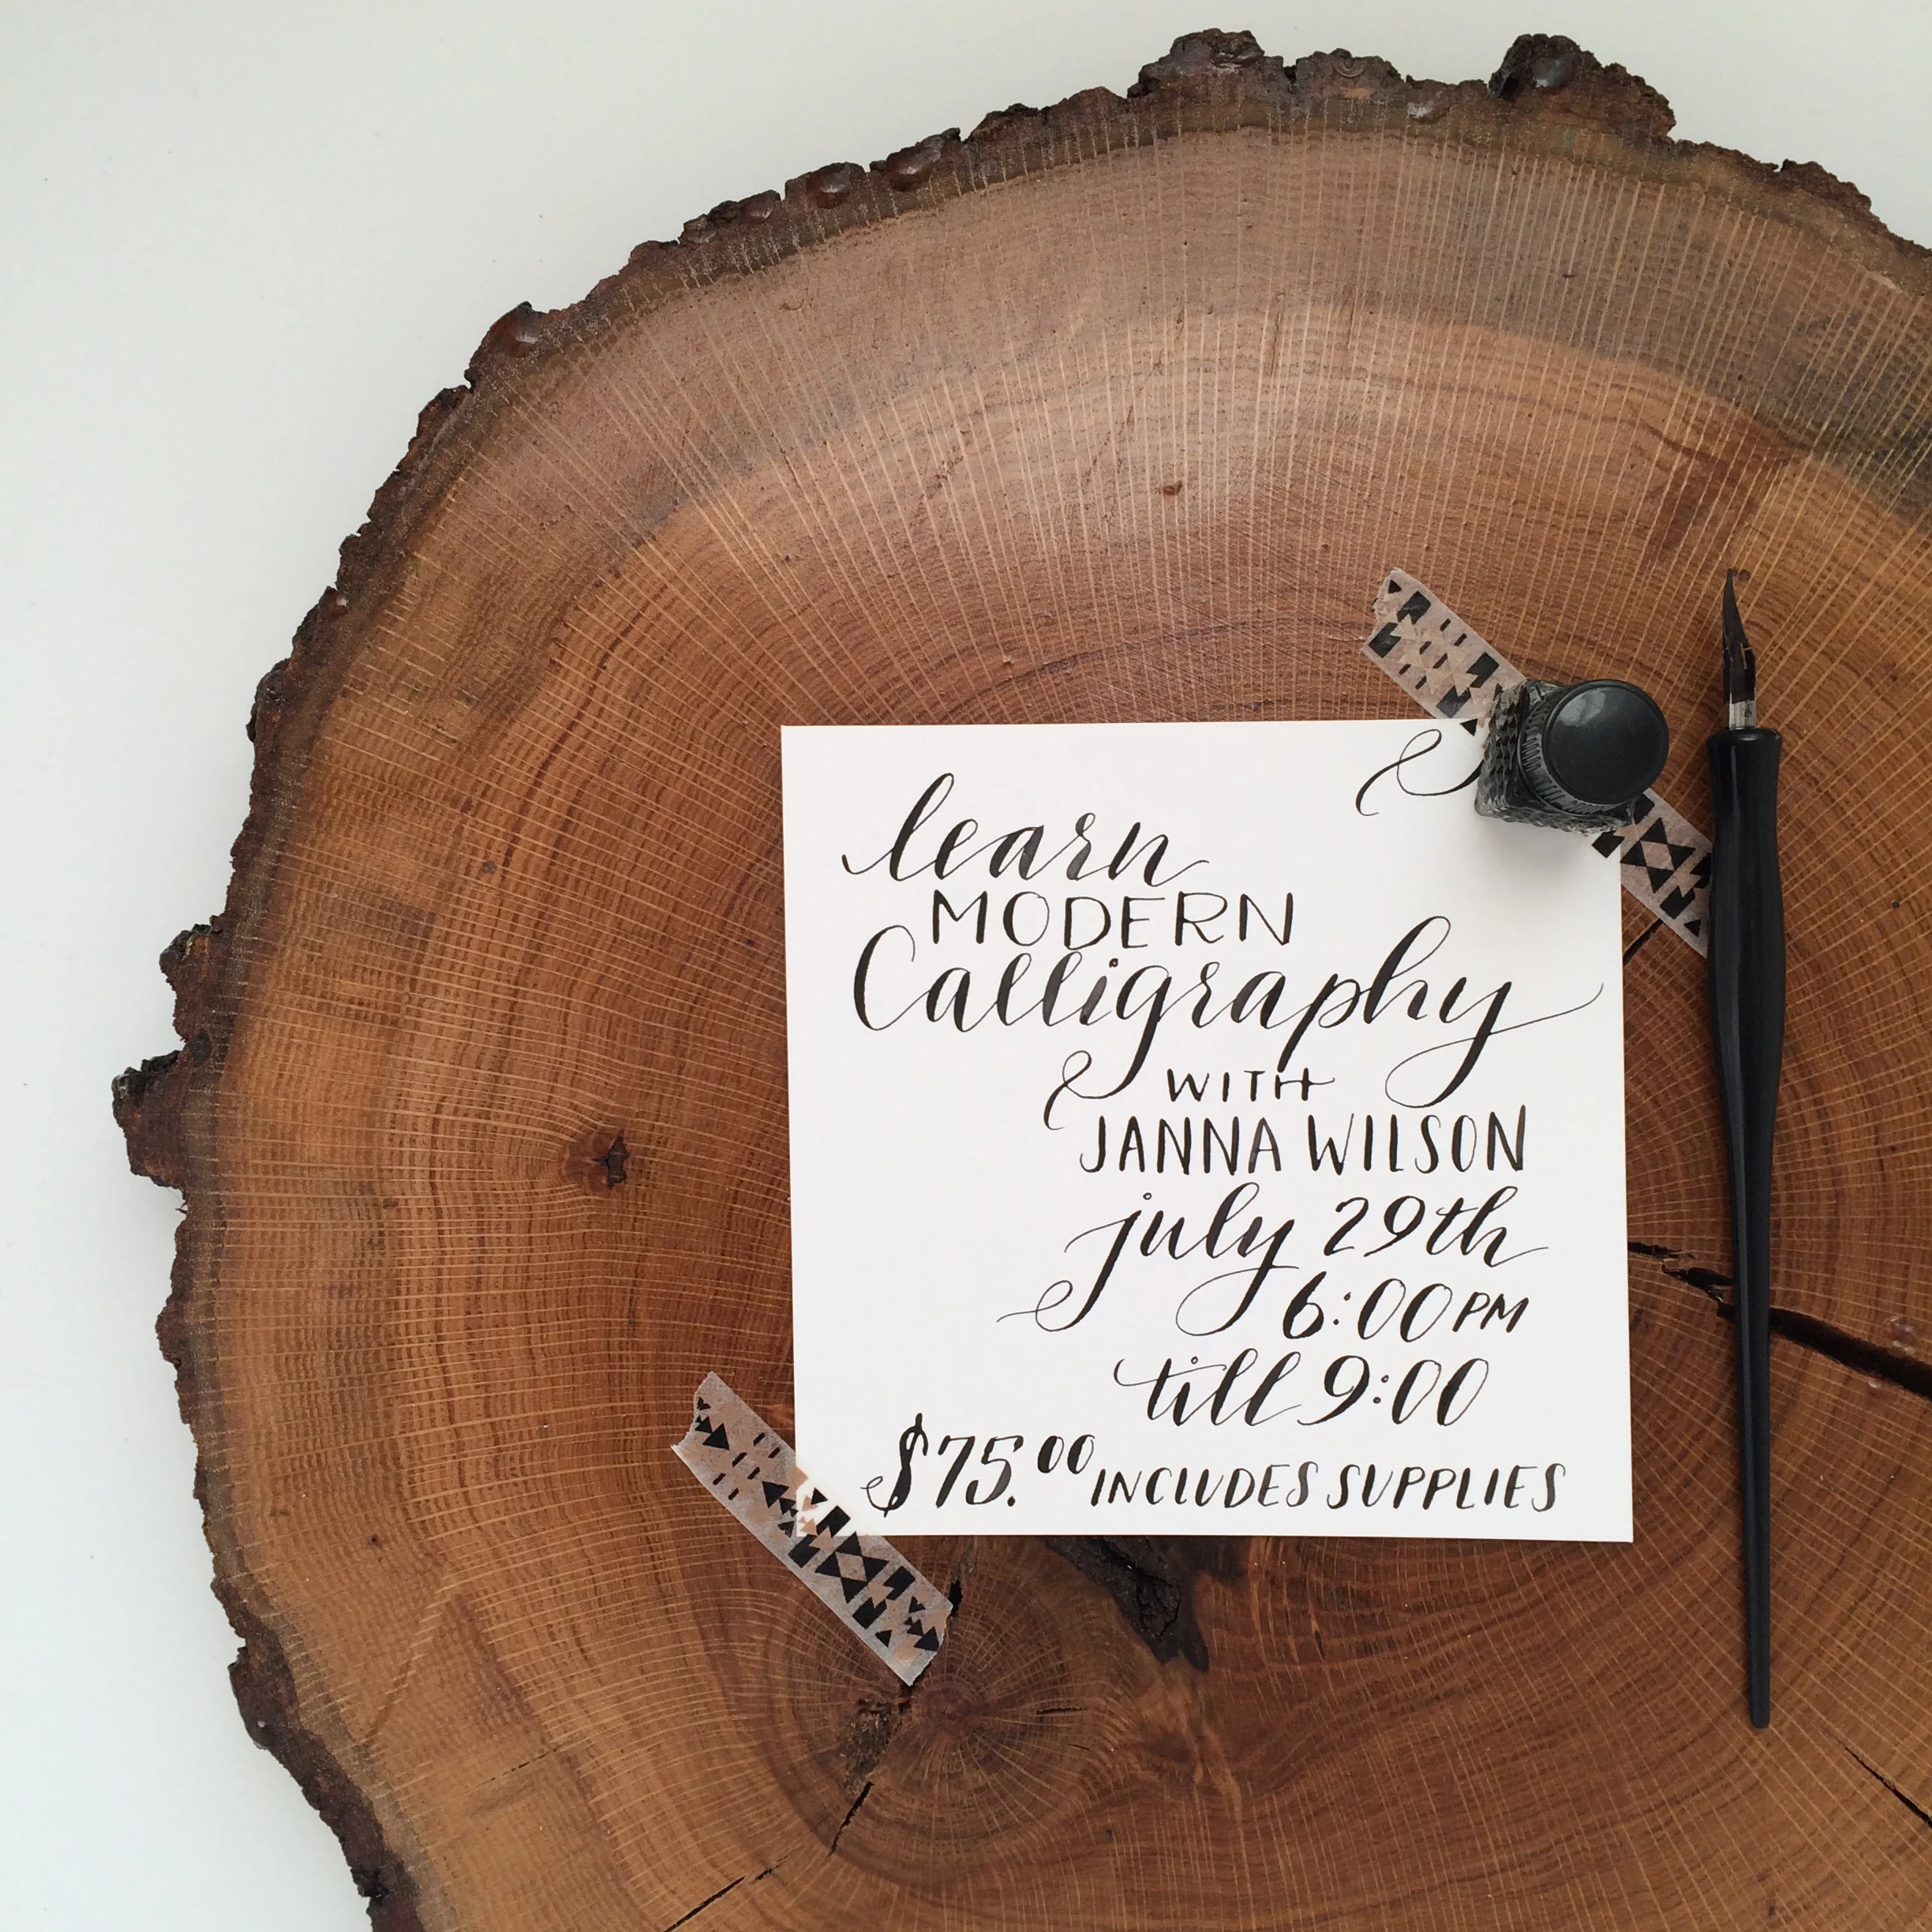 learn
MODERN
Calligraphy
WITH
JANNA WILSON
july 29th
6:00 PM
till 9:00
$75.00 INCLUDES SUPPLIES